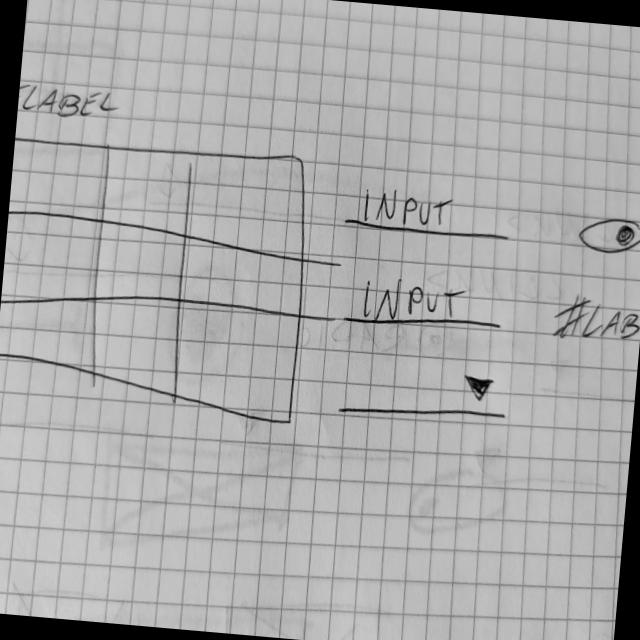 LABEL
INPUT
INPUT
#LAB